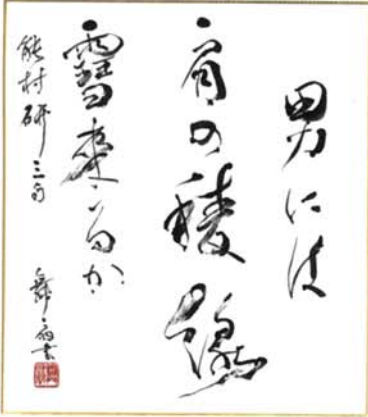 男には
肩の稜線
雪来るか
能村研三句